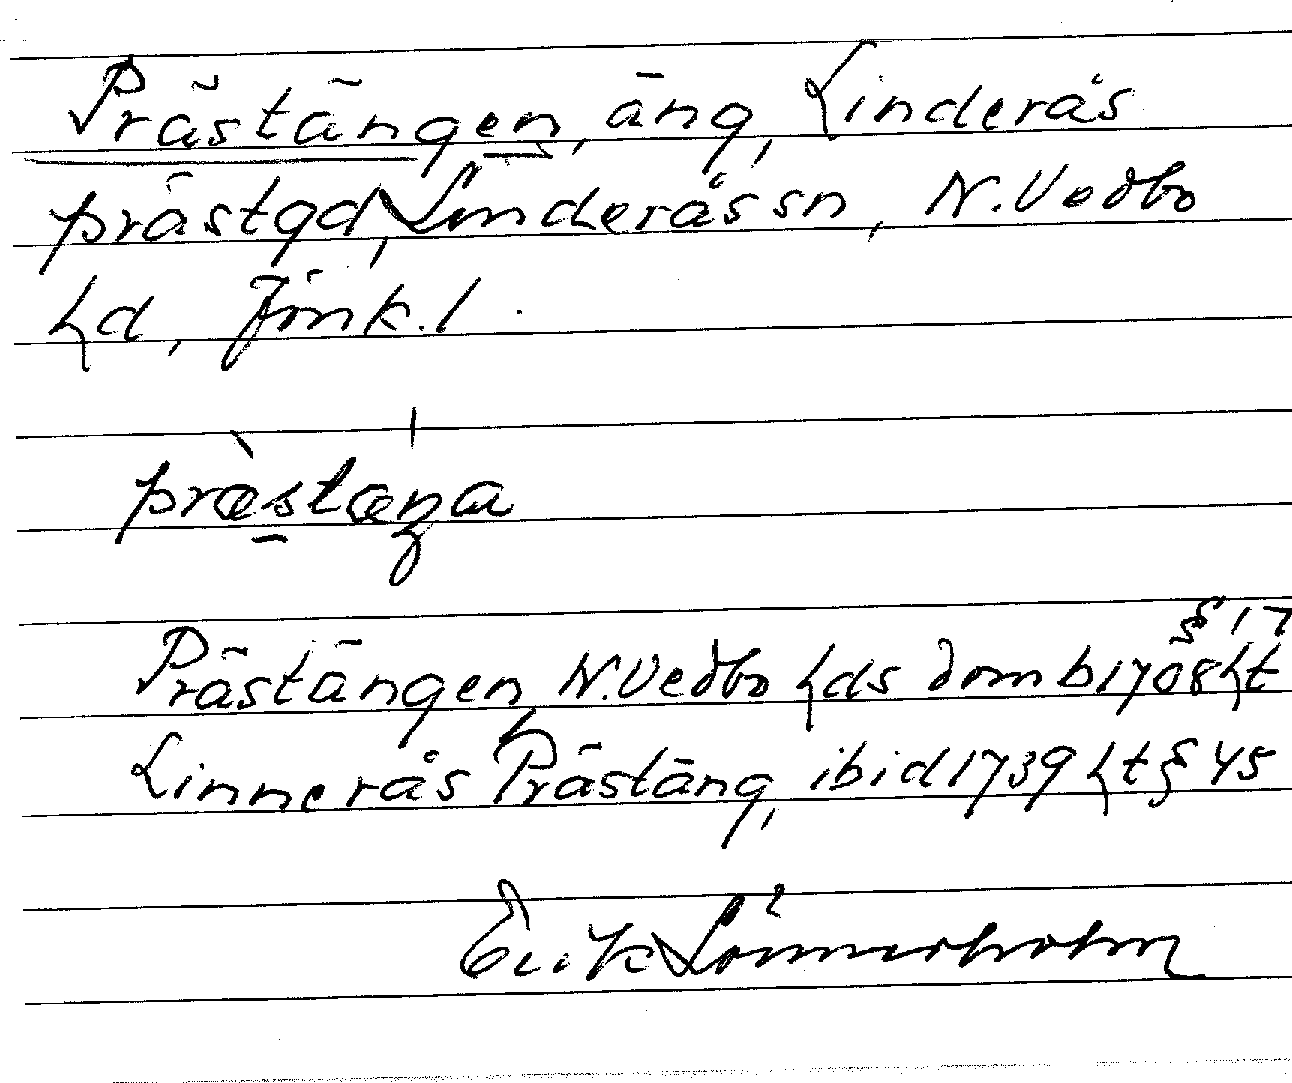 Prästängen, äng, Linderås
prästgd, Linderås sn, N. Vedbo
hd, Jönk. l.
præ̀stæŋa
Prästängen N. Vedbo hds domb 1708 ht § 17
Linnerås Prästäng, ibid 1739 ht § 45
Erik Lönnerholm